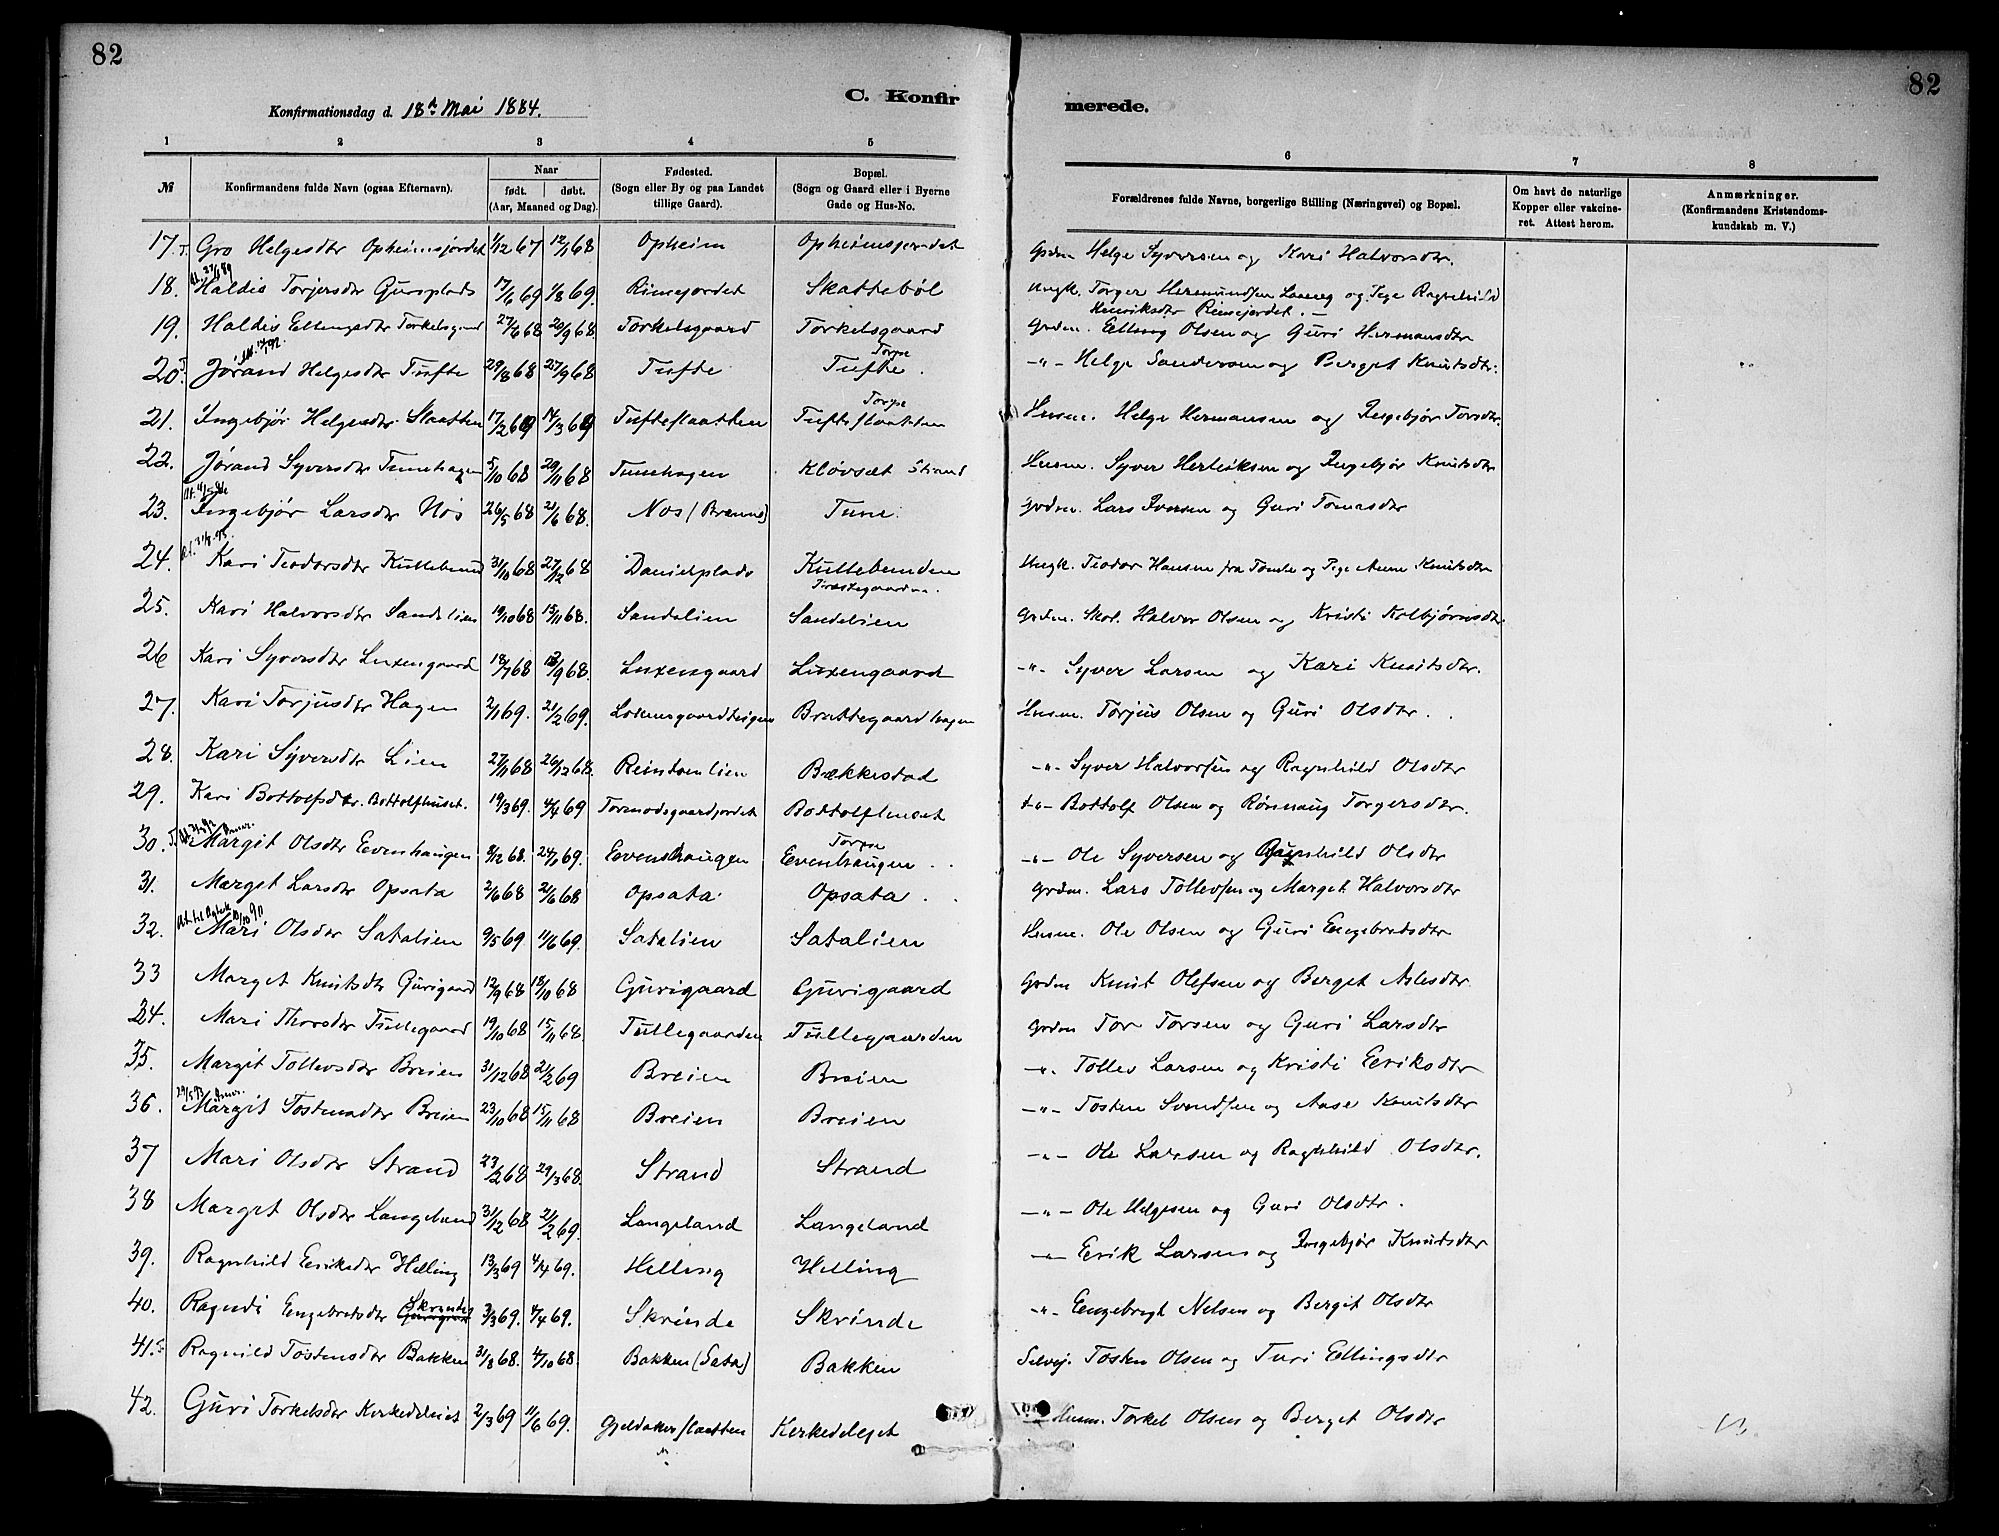 82
82
C. Konfirmerede.
Konfirmationsdag d. 18de Mai 1884.
1 2 3 4 5 6 7 8
№ Konfirmandens fulde Navn (ogsaa Efternavn). Naar født. døbt. (Aar, Maaned og Dag). Fødested. (Sogn eller By og paa Landet tillige Gaard). Bopæl. (Sogn og Gaard eller i Byerne Gade og Hus-No. Forældrenes fulde Navne, borgerlige Stilling (Næringsvei) og Bopæl. Om havt de naturlige Kopper eller vakcineret. Attest herom. Anmærkninger. (Konfirmandens Kristendomskundskab m. V.)
17. Gro Helgesdtr Opheimsjordet 1/12 67 12/1 68 Opheim Opheimsjordet Grdm Helge Syversen og Kari Halvorsdtr.
18. Haldis Torjersdtr Gusplads 17/6 69 1/8 69. Rimejordet Skattebøl Ungk. Torger Hermundsen og Pige Ragnhild
Henriksdtr Rimejordet. —
19. Haldis Ellingsdtr Torkelsgard 27/7 68 20/9 68. Torkelsgaard Torkelsgaard Grdm. Elling Olsen og Guri Hermansdtr
20. Jørand Helgesdtr Tufte 29/8 68 27/9 68 Tufte Torpe Tufte. -"- Helge Sandersen og Berget Knutsdtr.
21. Ingebjør Helgesdtr. Slaatten 17/2 69 14/3 69 Tufteslaatten Torpe Tufteslaatten Husm. Helge Hermansen og Ingebjør Torsdtr.
22. Jørand Syversdtr Tunehagen 5/10 68 29/11 68 Tunehagen Kløvsæt Strand Husm. Syver Herleiksen og Ingebjør Knutsdtr
23. Ingebjør Larsdtr Nos 26/5 68 21/6 68. Nos (Brenno) Tune. Grdm. Lars Iversen og Guri Tomasdtr
24. Kari Teodorsdtr Kullebund 31/10 68 27/12 68 Danielplads Kullebunden Ungk. Teodor Hansen fra og Pige Anne Knutsdtr
25. Kari Halvorsdtr Sandalien 19/10 68 15/11 68. Sandalien Sandalien Grdm. Skol. Halvor Olsen og Kristi Kolbjørnsdtr
26 Kari Syversdtr Luxengaard 18/7 68 13/9 68. Luxengaard Luxengaard -"- Syver Larsen og Kari Knutsdtr.
27. Kari Torjusdtr Hagen 2/1 69. 21/2 69. Brattegaardhagen Husm. Torjus Olsen og Guri Olsdtr.
28. Kari Syversdtr Lien 27/11 68 26/12 68. Reintonlien Bækkestad -"- Syver Halvorsen og Ragnhild Olsdtr
29. Kari Bottolfsdtr. Bottolfhuset. 19/3 69. 4/4 69 Tormodsgaardjordet Bottolfhuset -"- Bottolf Olsen og Rønnaug Torgersdtr.
30. Margit Olsdtr Evenhaugen 8/12 68. 24/1 69. Evenshaugen Torpe Evenhaugen -"- Ole Syversen og Ragnhild Olsdtr
31. Marget Larsdtr Opsata 2/6 68 21/6 68 Opsata Opsata Grdm. Lars Tollevsen og Marget Halvorsdtr
32. Mari Olsdtr Satalien 9/5 69 11/6 69. Satalien Satalien Husm. Ole Olsen og Guri Engebretsdtr
33 Marget Knutsdtr Gurigaard 12/9 68 18/10 68 Gurigaard Gurigaard Grdm Knut Olefsen og Berget Aslesdtr
34. Mari Thorsdtr Tullegaard 19/10 68 15/11 68. Tullegaarden Tullegaarden Grdm Tor Torsen og Guri Larsdtr
35. Margit Tollevsdtr Breien 31/12 68 21/2 69 Breien Breien -"- Tollev Larsen og Kristi Eeriksdtr
36. Margit Tostensdtr Breien 23/10 68 15/11 68 Breien Breien -"- Tosten Svendsen og Aase Knutsdtr
37 Mari Olsdtr Strand 23/2 68 29/3 68. Strand Strand -"- Ole Larsen og Ragnhild Olsdtr.
38 Marget Olsdtr Langeland 31/12 68 21/2 69. Langeland Langeland -"- Ole Helgesen og Guri Olsdtr.
39. Ragnhild Eeriksdtr Helling 13/3 69 4/4 69. Helling Helling -"- Eerik Larsen og Ingebjør Knutsdtr
40. Ragndi Engebretsdtr Skrinde 3/3 69. 4/4 69. Skrinde Skrinde -"- Eengebregt Nelsen og Bergit Olsdtr
41. Ragnild Tostensdtr Bakken 31/8 68. 4/10 68. Bakken (Sata) Bakken Selvej. Tosten Olsen og Turi Ellingsdtr
42. Guri Torkelsdtr Kerkedelejet 2/3 69 11/6 69. Gjeldakerslaatten Kerkedelejet Husm. Torkel Olsen og Berget Olsdtr